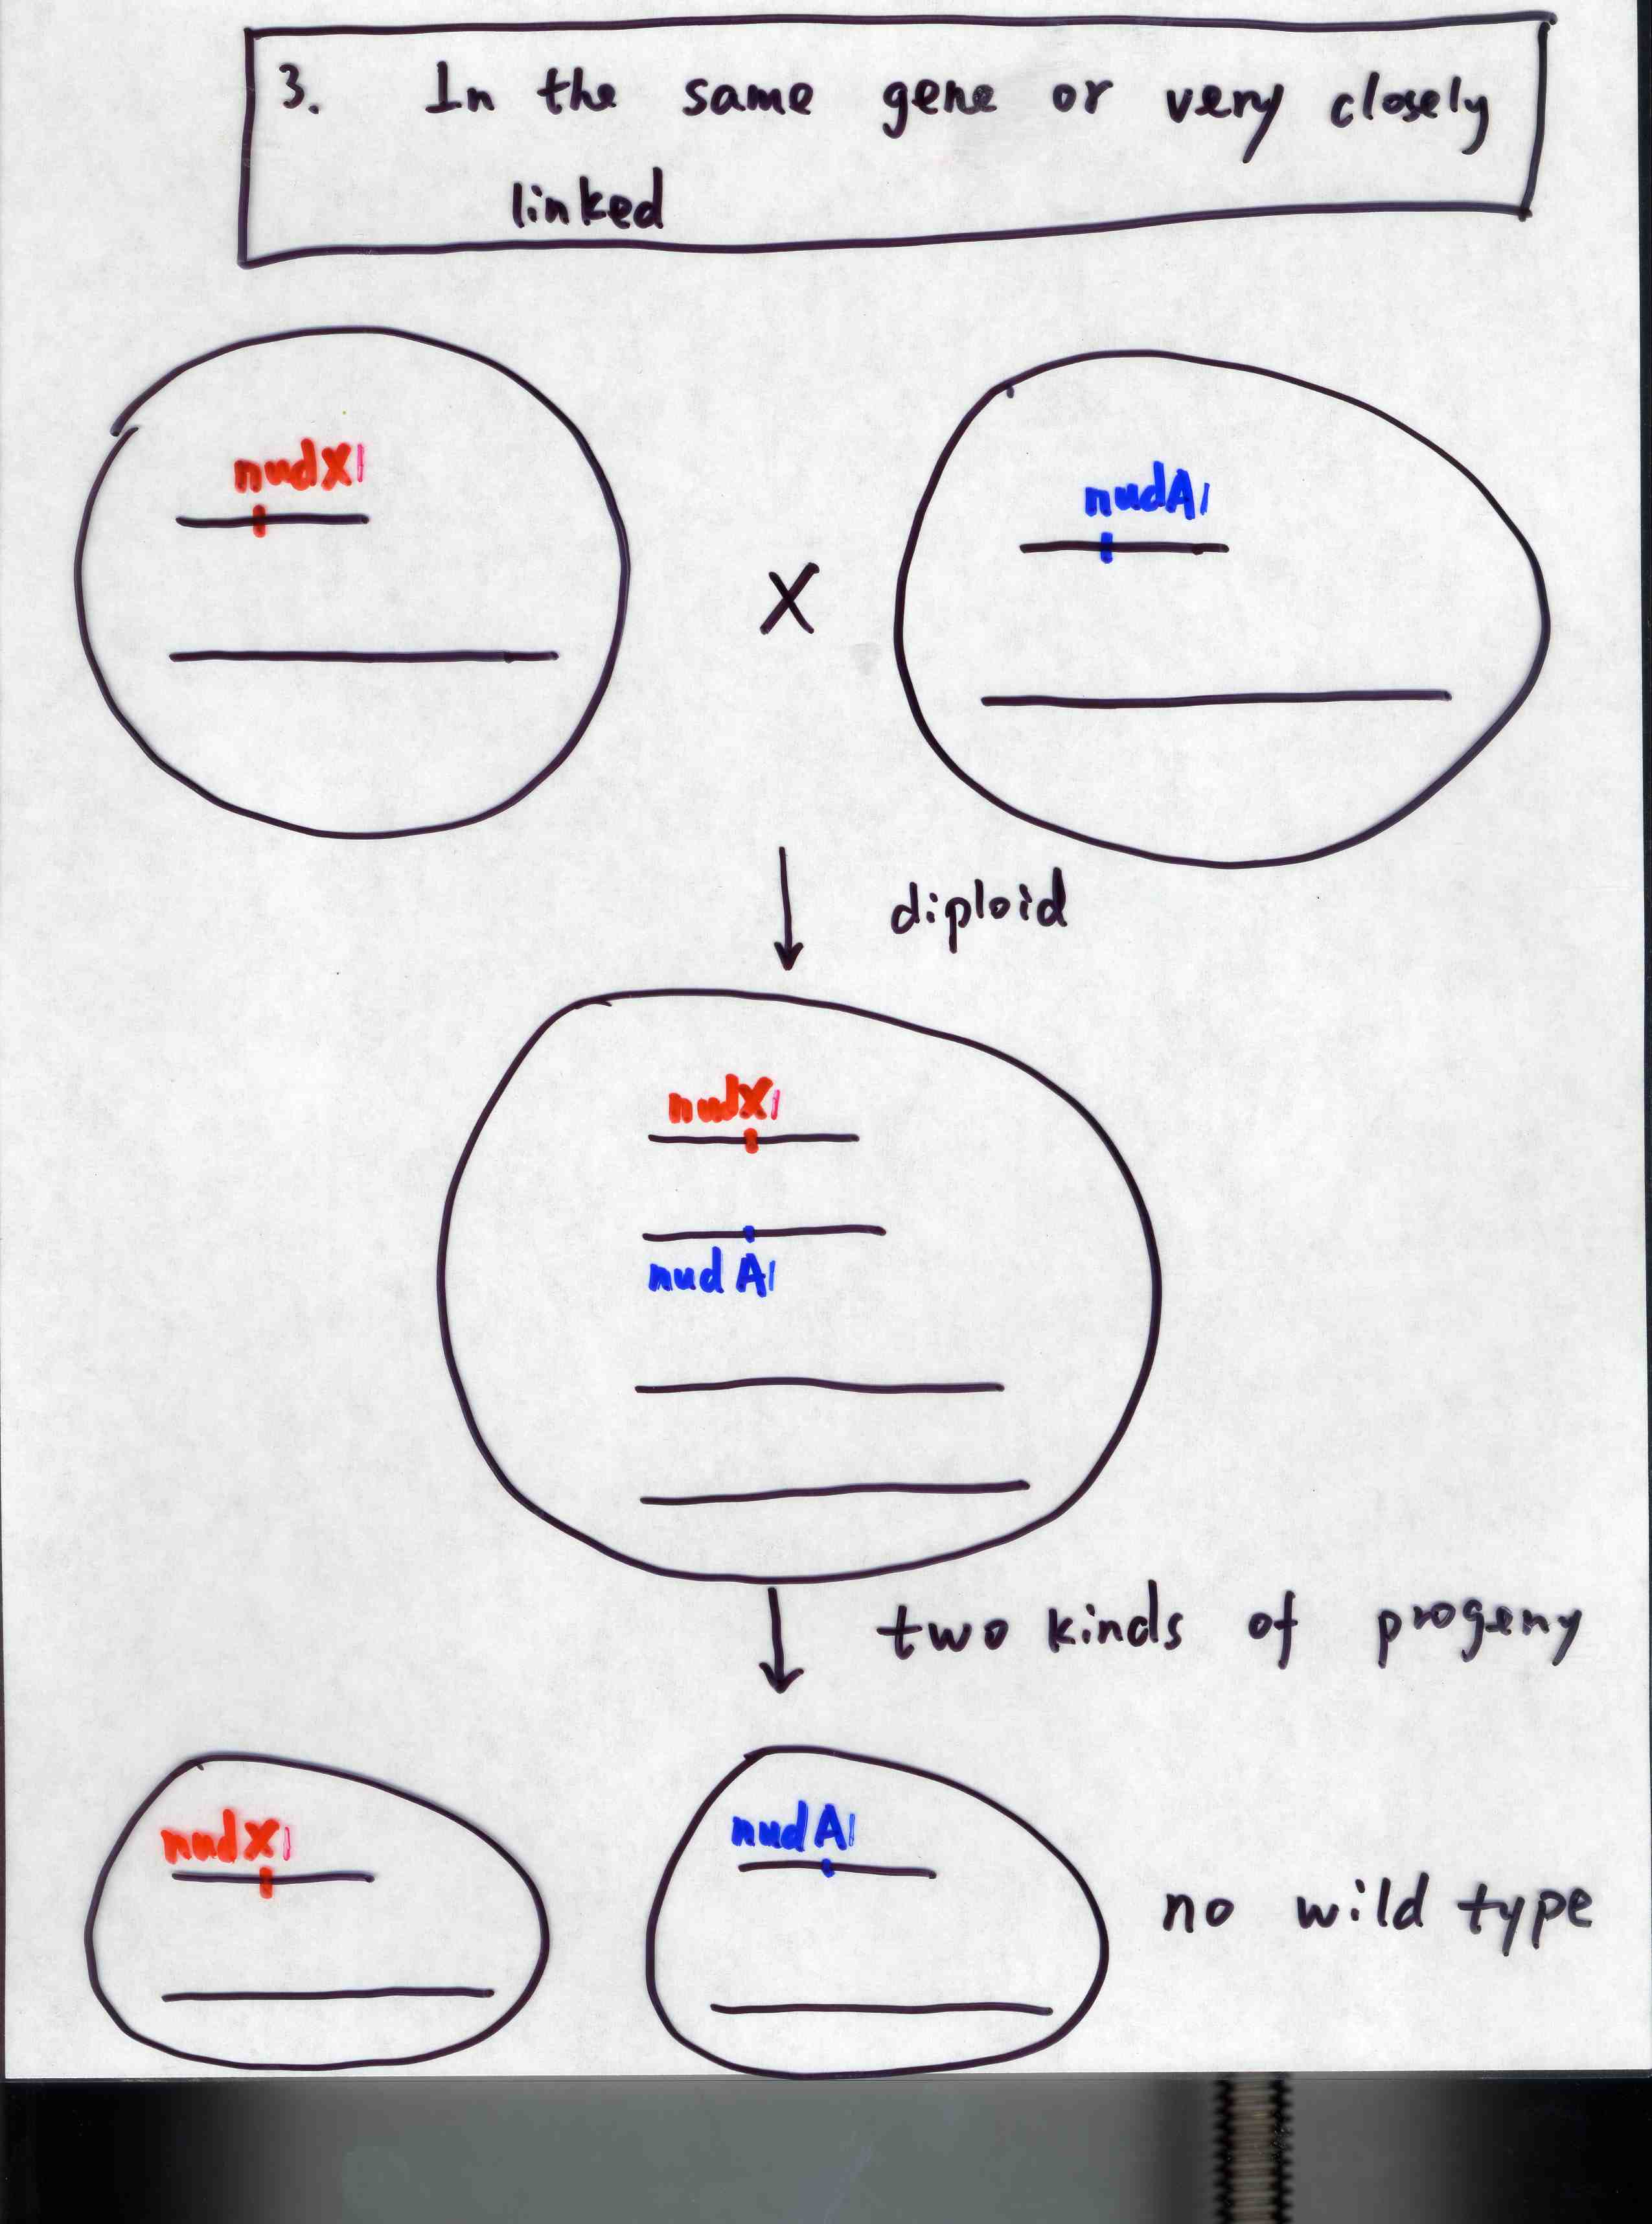 3. In the same gene or very closely
linked
nudX1
nudA1
X
diploid
nudX1
nudA1
two kinds of progeny
nudX1
nudA1
no wild type